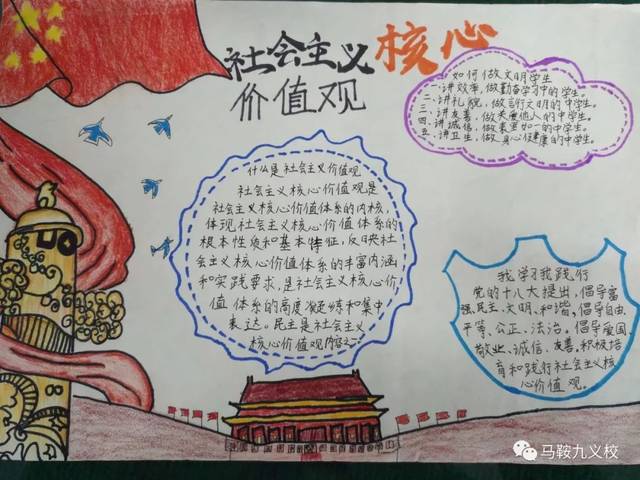 社会主义核心
价值观
如何做文明学生
一、讲效率,做勤奋学习中的学生。
二、讲礼貌,做言行文明的中学生。
三、讲友善,做关爱他人的中学生。
四、讲诚信,做表里如一的中学生。
五、讲卫生,做身心健康的中学生。
什么是社会主义价值观
社会主义核心价值观是
社会主义核心价值体系的内核,
体现社会主义核心价值体系的
根本性质和基本特征,反映社
会主义核心价值体系的丰富内涵
和实践要求,是社会主义核心价
值体系的高度凝练和集中
表达。民主是社会主义
核心价值观内容之一
我学习我践行
党的十八大提出,倡导富
强、民主、文明、和谐。倡导自由、
平等、公正、法治。倡导爱国、
敬业、诚信、友善。积极培
育和践行社会主义核
心价值观。
马鞍九义校